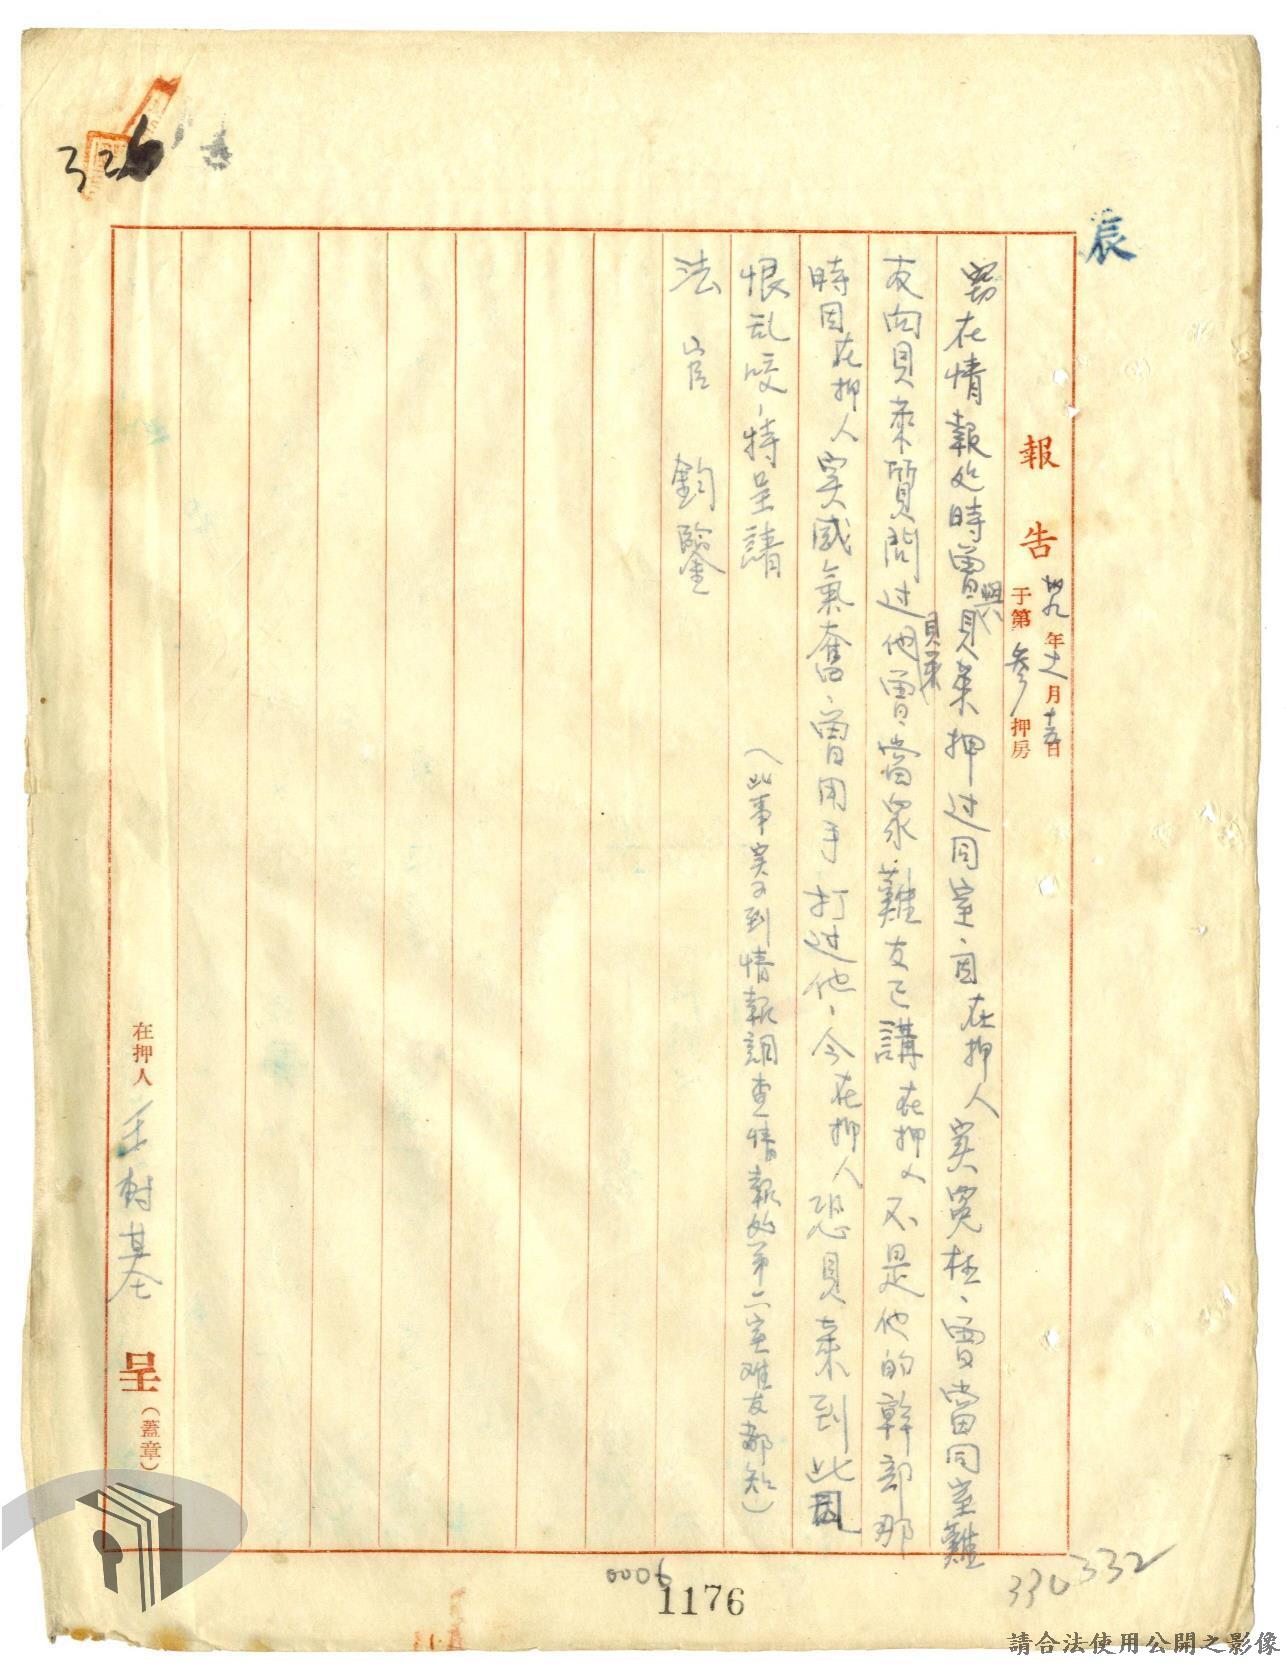 326
辰
報告
卌九年十一月十五日
于第參押房
竊在情報処時曾與貝萊押过同室、因在押人実冤枉、曾當同室難
友向貝萊質問过他貝萊曾當眾難友已講在押人不是他的幹部那
時因在押人実感氣奮、曾用手打过他、今在押人恐貝萊到此因
恨乱咬、特呈請
法官 鈞鑒
（此事実可到情報調查情報処第六室难友都知）
在押人 王樹基 呈（蓋章）
0006
1176
330
332
請合法使用公開之影像